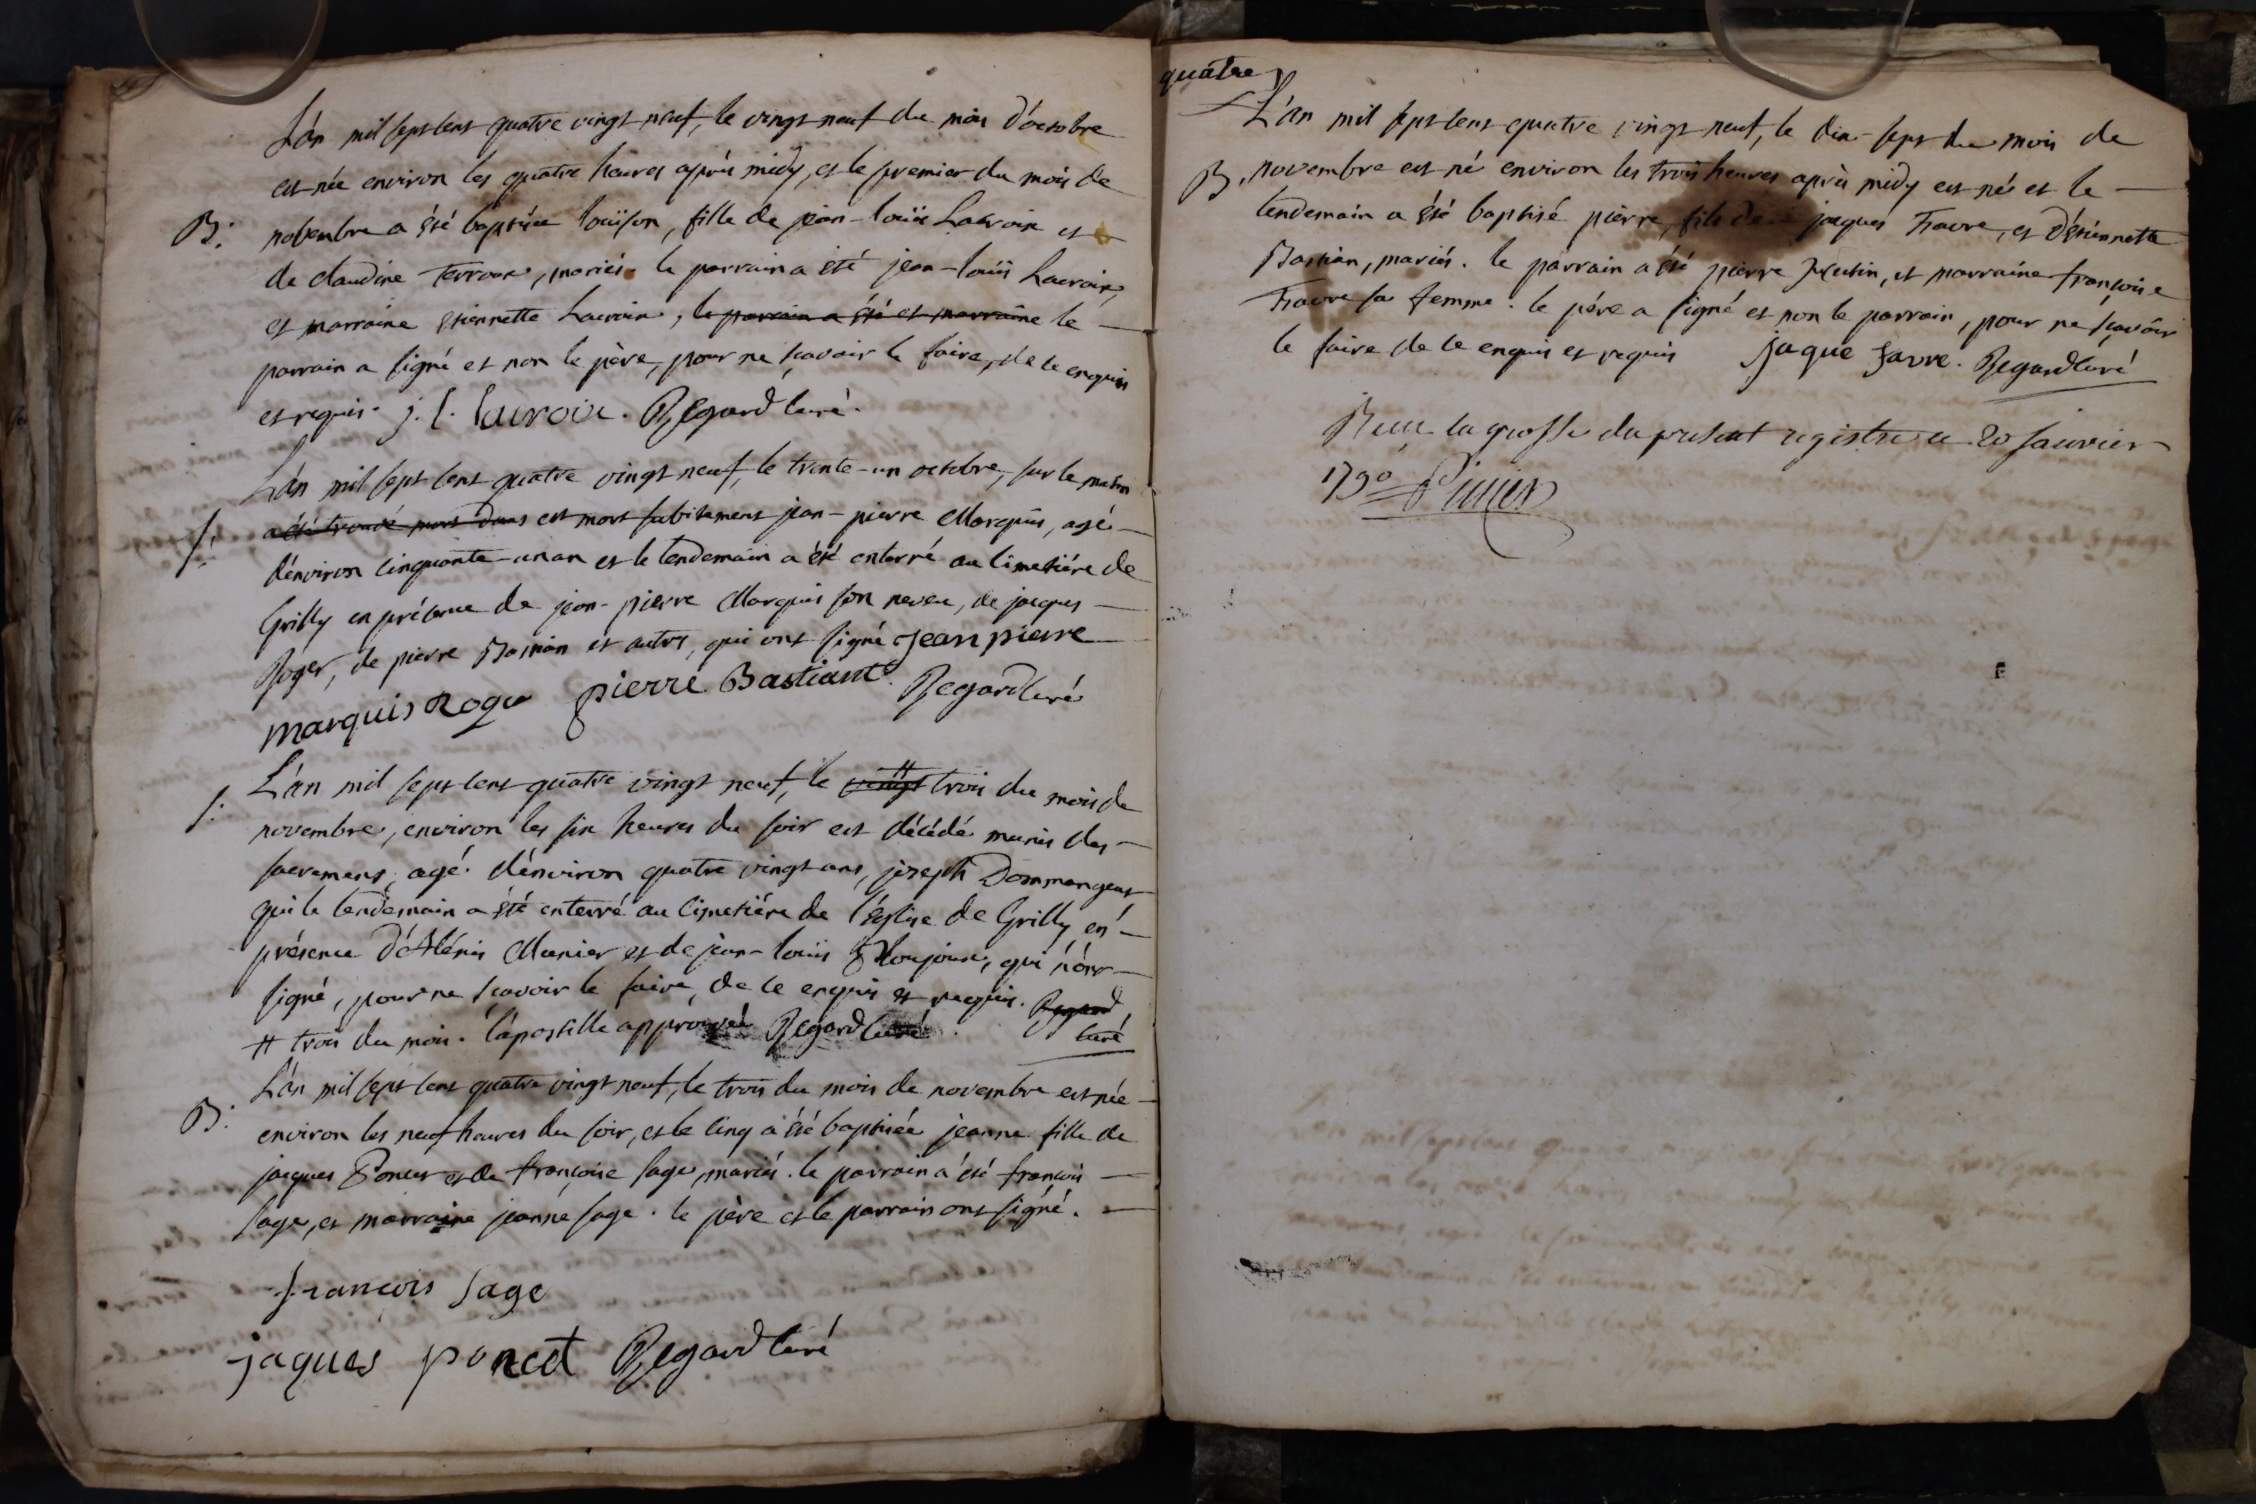 L'an mil sept cent quatre vingt neuf, le vingt neuf du mois d'octobre
est née environ les quatre heures après midy, et le premier du mois de
B. novembre a été baptisée louïson, fille de jean-louïs Lacroix et
de claudine Terroux, mariés. le parrain a été jean-louïs Lacroix,
et marraine étiennette Lacroix, le parrain a été et marraine le
parrain a signé et non le père, pour ne sçavoir le faire, de ce enquis
et requis. j. l. lacroix. Regard curé.
L'an mil sept cent quatre vingt neuf, le trente-un octobre, sur le matin
S. a été trouvé mort dans est mort subitement jean-pierre Marquis, agé
d'environ cinquante-un an et le lendemain a été enterré au cimetière de
Grilly en présence de jean-pierre Marquis son neveu, de jacques
Roger, de pierre Bastian et autres, qui ont signé jean pierre
marquis Roge pierre Bastiant Regard curé
S. L'an mil sept cent quatre vingt neuf, le vingt # trois du mois de
novembre, environ les six heures du soir est décédé munis des
sacremens, agé d'environ quatre vingt ans, joseph Dommangeat
qui le lendemain a été enterré au cimetière de l'église de Grilly en
présence d'Aléxis Munier et de jean-louïs, qui n'ont
signé, pour ne sçavoir le faire, de ce enquis et requis. Regard
# trois du mois. l'apostille approuvée Regard curé. curé
L'an mil sept cent quatre vingt neuf, le trois du mois de novembre est née
B. environ les neuf heures du soir, et le cinq a été baptisée jeanne fille de
jacques Poncet et de françoise sage, mariés. le parrain a été françois
sage, et marraine jeanne sage. le père et le parrain ont signé.
françois sage
jaques poncet Regard curé
quatre
L'an mil sept cent quatre vingt neuf, le dix-sept du mois de
B. novembre est né environ les trois heures après midy est né et le
lendemain a été baptisé pierre, fils de jacques Favre, et d'étiennette
Bastian, mariés. le parrain a été pierre, et marraine françoise
Favre sa femme. le père a signé et non le parrain, pour ne sçavoir
le faire de ce enquis et requis jaque favre. Regard curé
Reçu la grosse du présent registre ce 20 janvier
1790